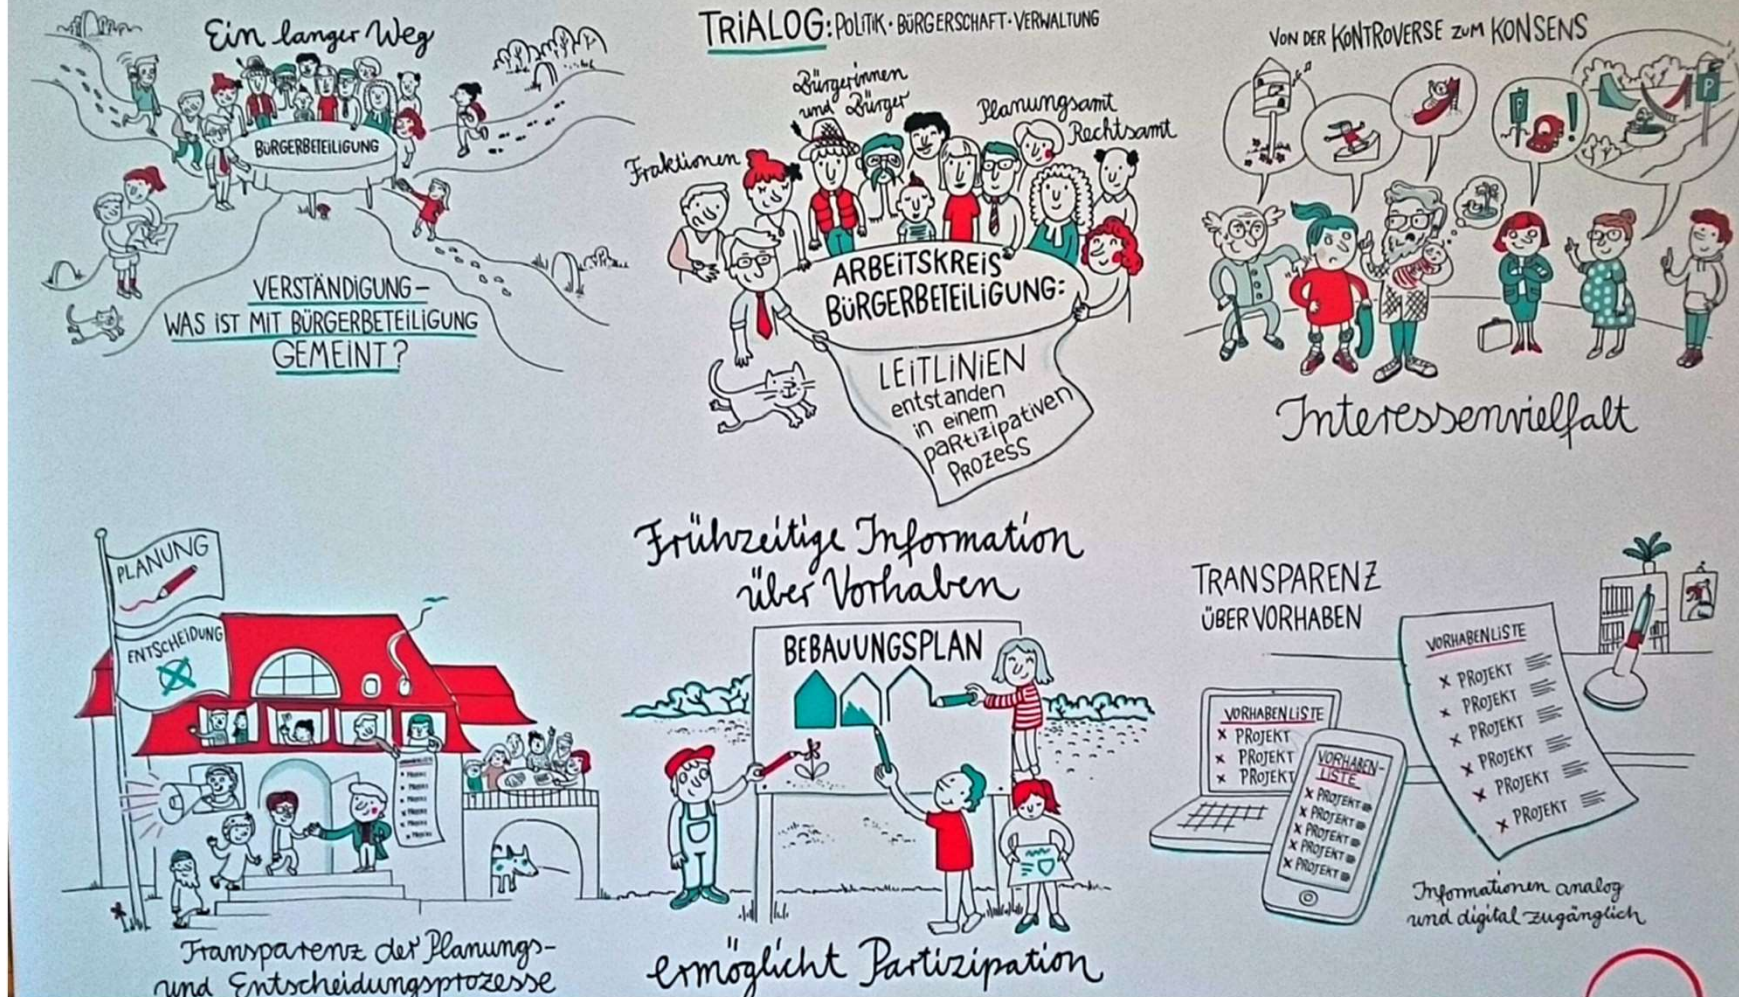 Ein langer Weg
BÜRGERBETEILIGUNG
VERSTÄNDIGUNG –
WAS IST MIT BÜRGERBETEILIGUNG
GEMEINT?
TRIALOG: POLITIK · BÜRGERSCHAFT · VERWALTUNG
Bürgerinnen
und Bürger
Planungsamt
Rechtsamt
Fraktionen
ARBEITSKREIS
BÜRGERBETEILIGUNG:
LEITLINIEN
entstanden
in einem
partizipativen
PROZESS
VON DER KONTROVERSE ZUM KONSENS
P
!
P
Interessenvielfalt
PLANUNG
ENTSCHEIDUNG
Transparenz der Planungs-
und Entscheidungsprozesse
Frühzeitige Information
über Vorhaben
BEBAUUNGSPLAN
ermöglicht Partizipation
TRANSPARENZ
ÜBER VORHABEN
VORHABENLISTE
x PROJEKT
x PROJEKT
x PROJEKT
VORHABEN-
LISTE
x PROJEKT
x PROJEKT
x PROJEKT
x PROJEKT
x PROJEKT
VORHABENLISTE
x PROJEKT
x PROJEKT
x PROJEKT
x PROJEKT
x PROJEKT
x PROJEKT
Informationen analog
und digital zugänglich